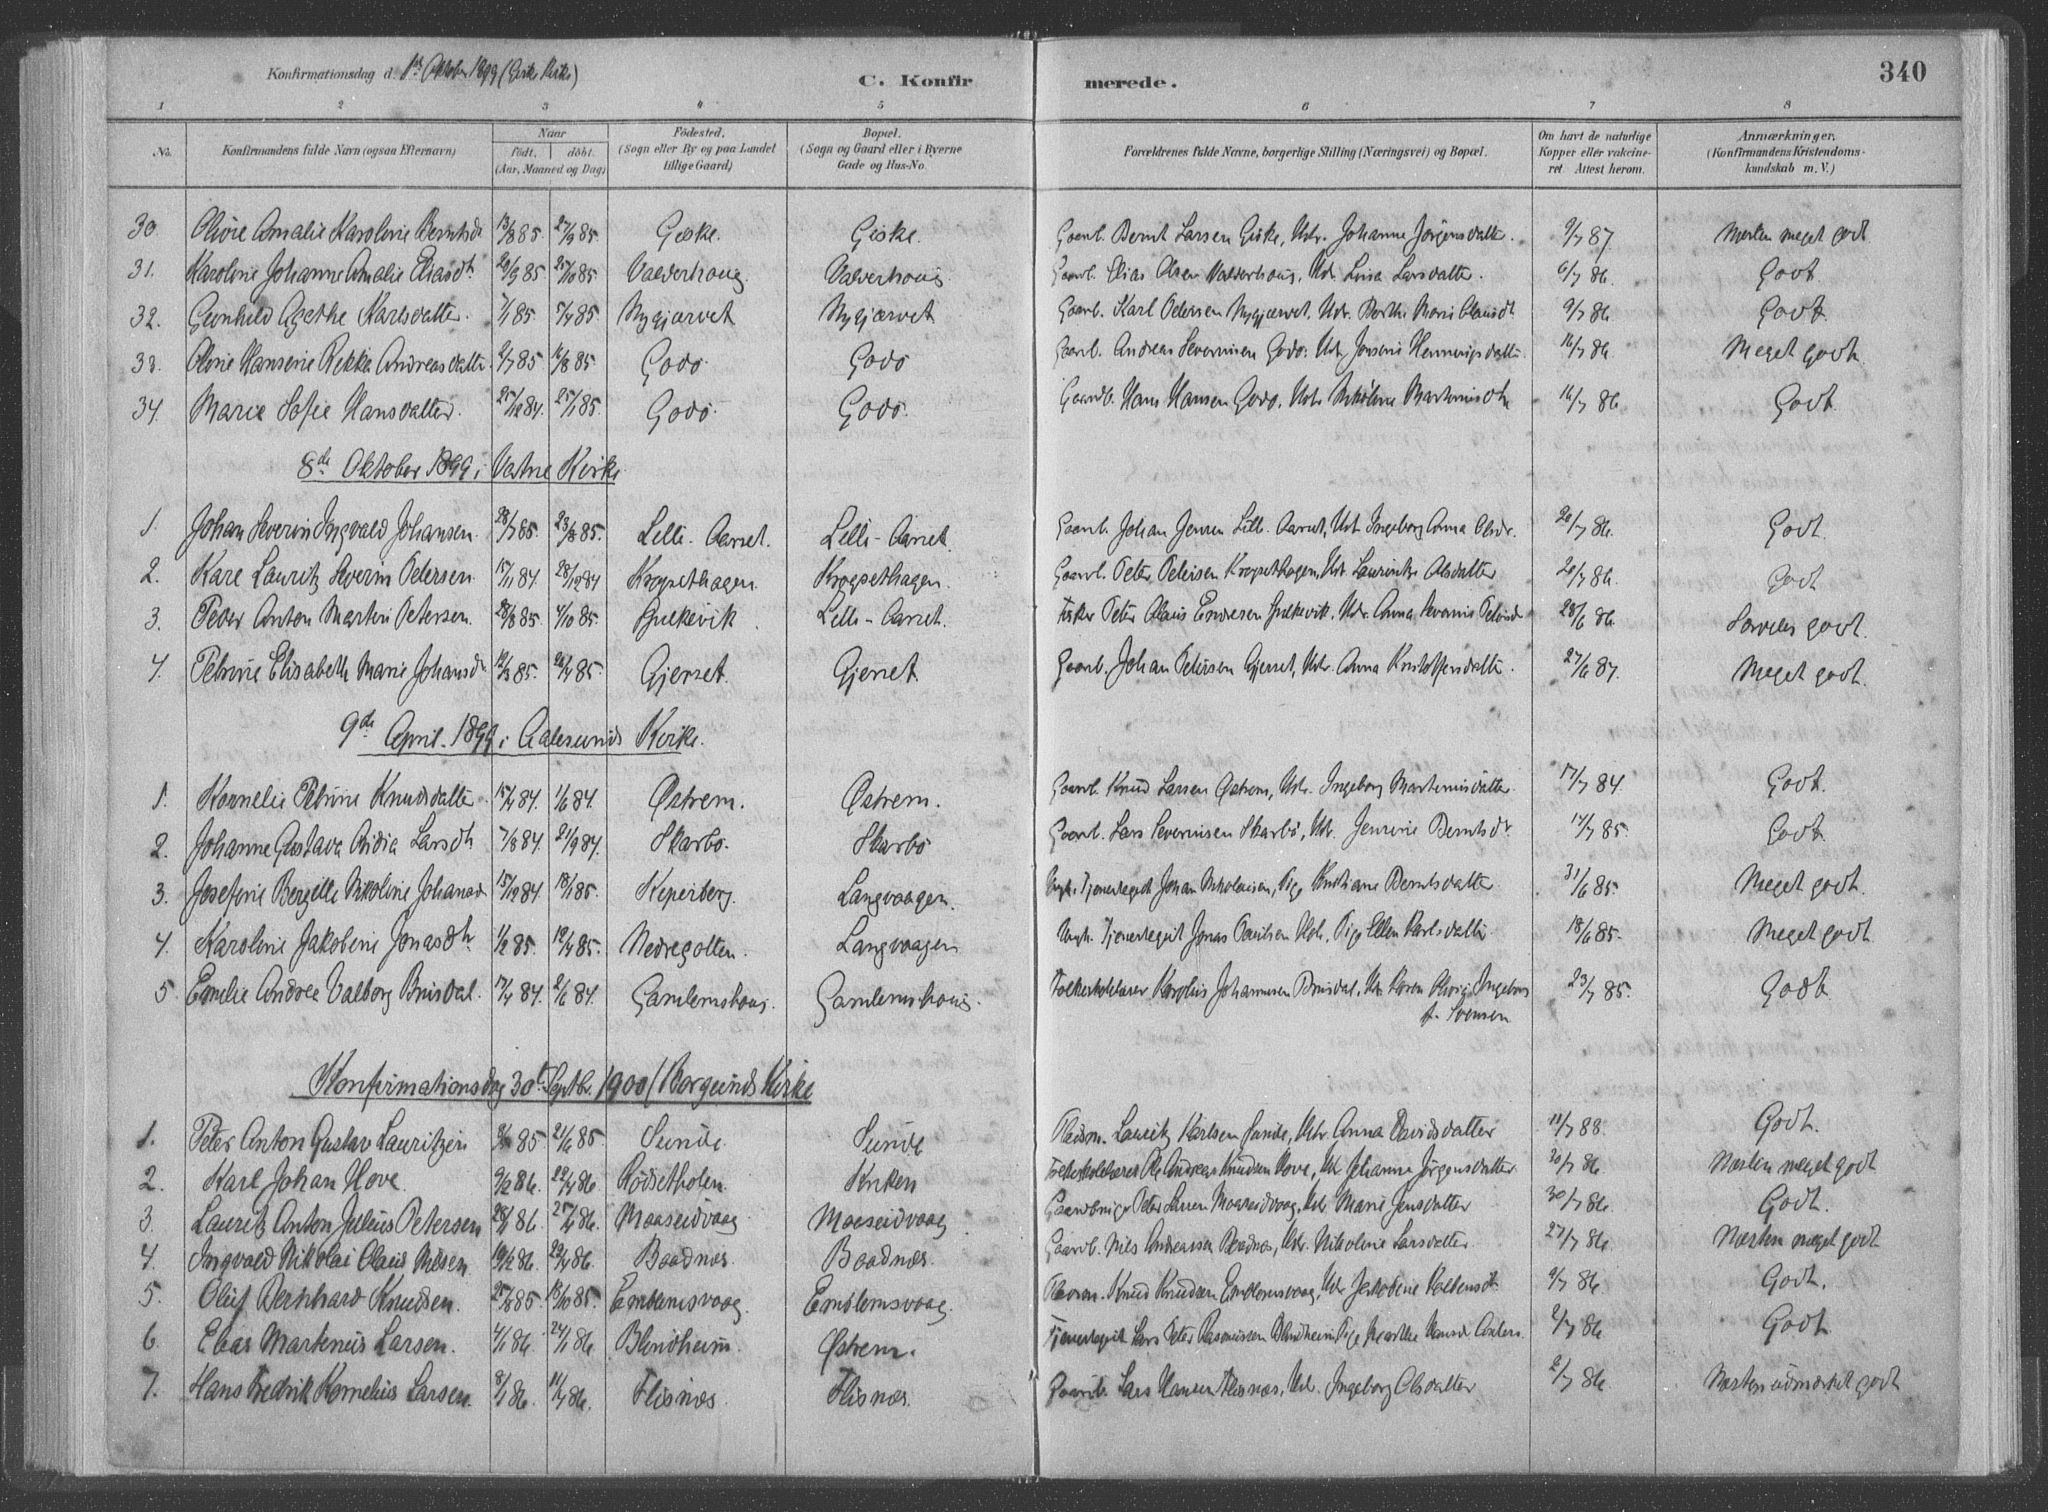 340
Konfirmationsdag d. 1ste Oktober 1899 (Giske Kirke)
C. Konfirmerede.
1 2 3 4 5 6 7 8
No. Konfirmandens fulde Navn (ogsaa Efternavn) Naar født. døbt. (Aar, Maaned og Dag) Fødested. (Sogn eller By og paa Landet tillige Gaard) Bopæl. (Sogn og Gaard eller i Byerne Gade og Hus-No. Forældrenes fulde Navne, borgerlige Stilling (Næringsvei) og Bopæl. Om havt de naturlige Kopper eller vakcineret. Attest herom. Anmærkninger. (Konfirmandens Kristendomskundskab m. V.)
30. Olivie Amalie Karoline Berntsd. 13/8 85. 27/9 85. Giske. Giske. Gaardb. Bernt Larsen Giske, Hstr. Johanne Jørgensdatter. 9/7 87. Næsten meget godt
31. Karoline Johanne Amalie Eliasdt. 20/9 85 25/10 85 Valderhoug Valderhoug Gaardb. Elias Olsen Valderhoug, Hstr. Lovisa Larsdatter. 6/7 86. Godt
32. Gunhild Agethe Karlsdatter. 7/1 85. 7/4 85. Nygjærdet Nygjærdet Gaardb. Karl Petersen Nygjærdet, Hstr. Berthe Marie Olausdt. 9/7 86 Godt.
33. Oline Hansine Rekka Andreasdatter. 2/7 85 16/8 85. Godø. Godø Gaardb. Andreas Severinsen Godø. Hstr. Jensine Henningsdatter. 16/7 86. Meget godt.
34. Marie Sofie Hansdatter. 25/12 84. 25/1 85. Godø. Godø. Gaardb. Hans Hansen Godø. Hstr. Nikoline Martinusdtr. 16/7 86 Godt.
8de Oktober 1899 i Vatne Kirke.
1. Johan Severin Ingvald Johansen. 28/7 85. 23/8 85. Lille-Aarset. Lille-Aarset. Gaardb. Johan Jensen Lille-Aarset, Hstr. Ingeborg Anna Olsdr. 20/7 86. Godt.
2. Kare Lauritz Severin Petersen. 15/11 84. 28/12 84 Krogsethagen Krogsethagen. Gaardb. Peter Petersen Krogsethagen, Hstr. Lauritze Olsdatter 20/7 86. Godt
3. Peder Anton Martin Petersen. 28/8 85 4/10 85. Hulkevik. Lille-Aarset. Fisker Peter Olaus Endresen Hulkevik. Hstr. Anna Severine Pedersd 28/6 86 Særdeles godt.
4. Petrine Elisabeth Marie Johansd. 12/3 85. 26/4 85. Gjerset. Gjerset. Gaardb. Johan Petersen Gjerset, Hstr. Anna Kristoffersdatter. 27/6 87. Meget godt.
9de April 1899 i Aalesunds Kirke.
1. Kornelie Petrine Knudsdatter. 15/4 84. 1/6 84. Østrem. Østrem. Gaardb. Knud Larsen Østrem, Hstr. Ingeborg Martinusdatter. 17/7 84. Godt.
2. Johanne Gustava Lidia Larsdt. 7/8 84. 21/9 84. Skarbø. Skarbø Gaardb. Lars Severinsen Skarbø, Hstr. Jensine Berntsdr. 17/7 85. Godt
3. Josefine Bergitte Nikoline Johansd 15/12 84. 18/1 85. Keperberg. Langvaagen. Ungk. Tjenestegut Johan Nikolaisen, Pige Kristiane Berntsdatter. 31/6 85. Meget godt.
4. Karoline Jakobine Jonasdtr. 1/2 85. 19/4 85. Nedregotten. Langvaagen Ungk. Tjenestegut Jonas Paulsen, Pige Ellen Karlsdatter 18/6 85. Meget godt
5 Emilie Andrea Valborg Brusdal. 17/4 84. 2/6 84. Gamlemshoug. Gamlemshoug. Folkeskolelærer Karolius Johannesen Brusdal, Hstr. Karen Ingeborg f. Svensen 23/7 85. Godt.
Konfirmationsdag 30te Septbr. 1900 (Borgunds Kirke
1. Peter Anton Gustav Lauritzen 85 21/6 85. Sunde. Sunde Pladsm. Lauritz Karlsen Sunde, Hstr. Anna Davidsdatter 11/7 88. Godt.
2. Karl Johan Hove. 9/2 86. 22/4 86 Rødsetholen. Kirken Folkeskolelærer Ole Andreas Knudsen Hove, Hstr. Johanne Jørgensdatter 30/7 86 Næsten meget godt
3. Lauritz Anton Julius Petersen 28/1 86. 25/4 86. Maaseidvaag Maaseidvaag Gaardbruger Peter Larsen Maaseidvaag, Hstr. Marie Jensdatter 30/7 86. Godt.
4. Ingvald Nikolai Olaus Nilsen 19/2 86. 23/4 86. Baadnæs. Baadnæs. Gaardb. Nils Andreassen Baadnæs, Hstr. Nikoline Larsdatter. 27/7 86. Næsten meget godt
5. Oluf Bernhard Knudsen. 25/8 85. 18/10 85. Emblemsvaag. Emblemsvaag. Pladsm. Knud Knudsen Emblemsvaag, Hstr. Jakobine 9/7 86. Godt.
6 Elias Martinus Larsen. 4/1 86. 24/1 86. Blindheim. Østrem. Tjenestegut Lars Peter Rasmussen Blindheim, Pige Marthe 2/7 86 Godt
7. Hans Fredrik Kornelius Larsen. 8/1 86. 11/4 86. Flisnæs. Flisnæs. Gaardb. Lars Hansen Flisnæs, Hstr. Ingeborg Olsdatter 2/7 86. Næsten udmærket godt